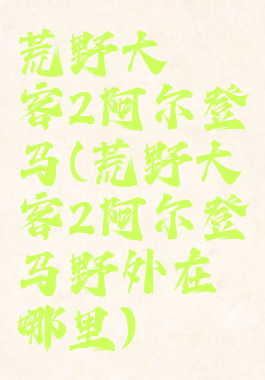 荒野大
客2阿尔登
马(荒野大
客2阿尔登
马野外在
哪里)